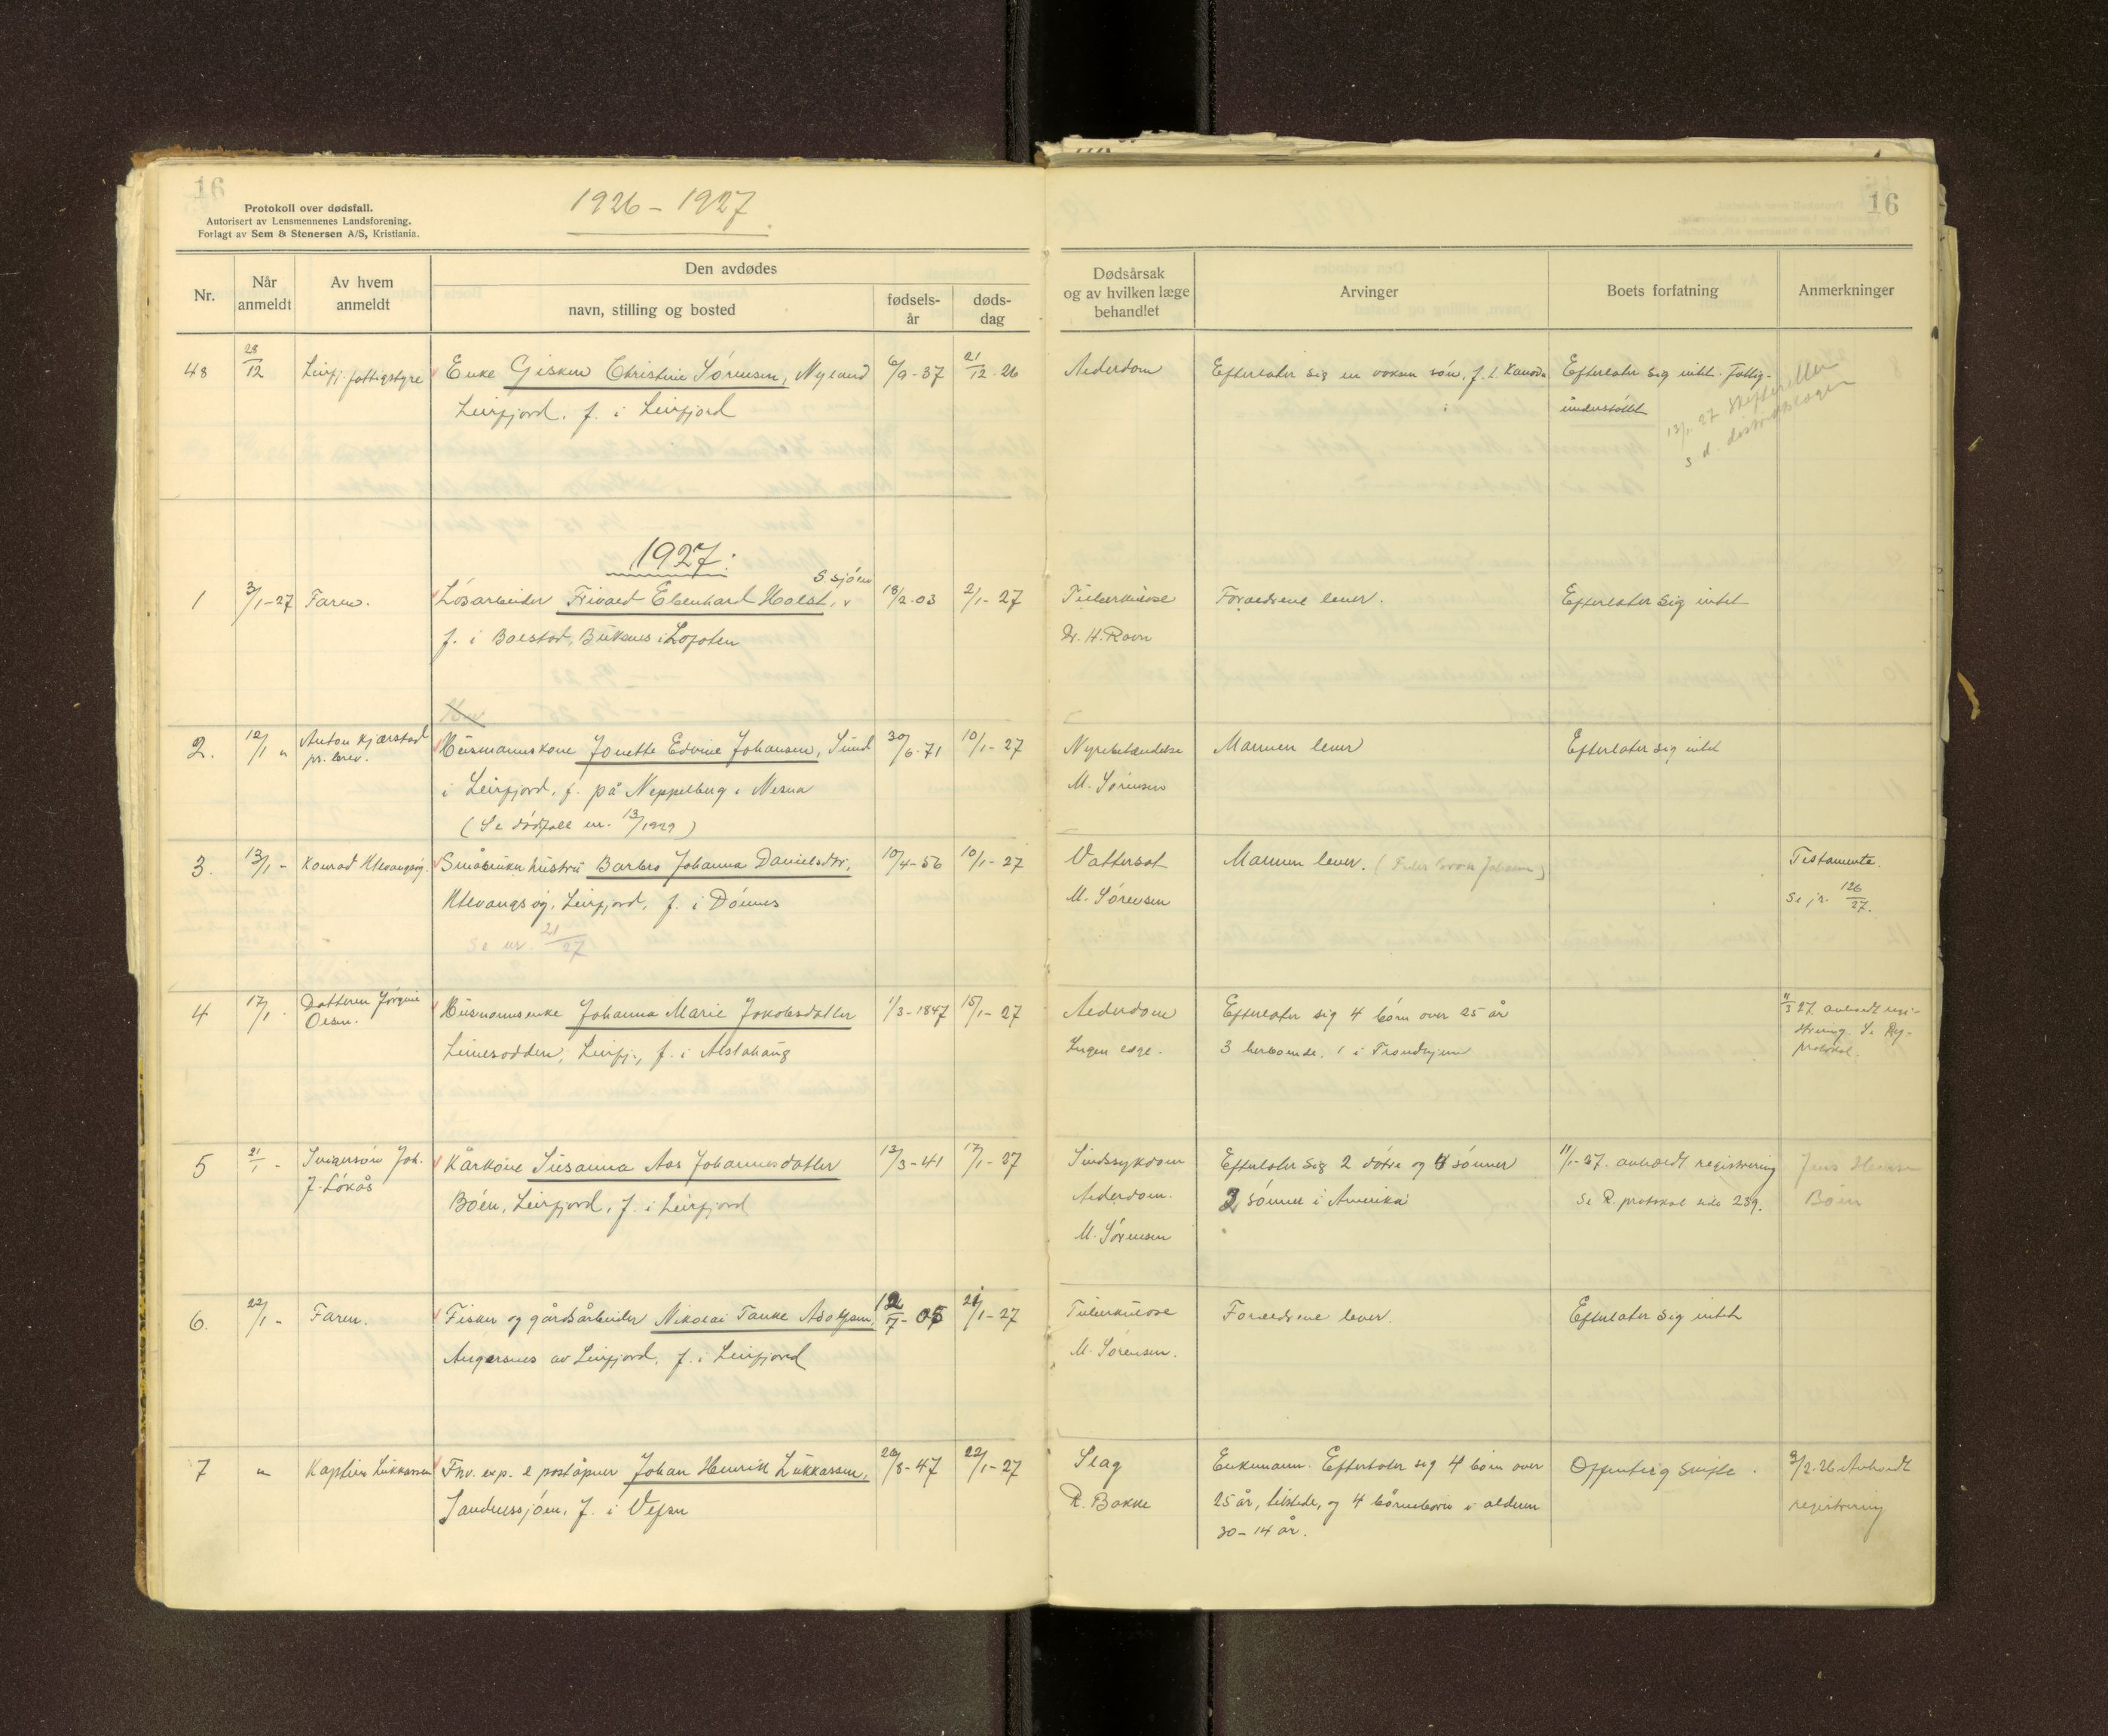 16
Protokoll over dødsfall.
Autorisert av Lensmennenes Landsforening.
Forlagt av Sem & Stenersen A/S, Kristiania.
1926 - 1927.
16
Nr.
Når anmeldt
Av hvem anmeldt
Den avdødes
navn, stilling og bosted
fødsels-år
døds-dag
Dødsårsak og av hvilken læge behandlet
Arvinger
Boets forfatning
Anmerkninger
48 28/12 Leirfj. fattigstyre Enke Gisken Christine Sørensen, Nylund 6/9-37 21/12-26 Alderdom Efterlater sig en voksen søn, f. t. Kanada Efterlater sig intet. Fattig-
Leirfjord. f. i Leirfjord understøttet
1927:
S.sjøen
1 3/1-27 Faren. Løsarbeider Trivald Ebenhard Holst, 18/2-03 2/1-27 Tuberkulose Forældrene lever. Efterlater sig intet
f. i Bolstad, Buksnes i Lofoten Dr. H. Ravn
2. 12/1 " Anton Kjærstad Husmannskone Jonette Edvine Johansen, Sund 30/6-71 10/1-27 Nyrebetændelse Mannen lever Efterlater sig intet
pr. brev.
i Leirfjord, f. på Neppelberg i Nesna M. Sørensen
(Se dødsfall nr. 13/1929)
3. 13/1 - Konrad Ulvangsøy. Småbruker hustru Barbro Johanna Danielsdtr, 10/4-56 10/1-27 Vattersot Mannen lever. Testamente.
Ulvangsøy, Leirfjord, f. i Dønnes M. Sørensen Se jr. 126/27.
Se nr. 21/27
4 17/1. Datteren Jørgine Husmannsenke Johanna Marie Jakobsdatter 1/3-1847 15/1-27 Alderdom Efterlater sig 4 børn over 25 år 11/3 27. avholdt regi-
Olsen. Leinesodden, Leirfj., f. i Alstahaug Ingen læge. 3 herboende, 1 i Trondhjem strering. Se Reg-
protokol.
5 21/1 - Svigersøn Joh. Kårkone Susanna Aas Johannesdatter 13/3-41 17/1-27 Sindssygdom Efterlater sig 2 døtre og 4 sønner 11/1-27. avholdt registrering Jens Hansen
J. Løkås Bøen, Leirfjord, f. i Leirfjord Alderdom. 2 sønner i Amerika Se R. protokol side 289. Bøen
M. Sørensen
6. 22/1 - Faren. Fisker og gårdsarbeider Nikolai Tanke Adolfsen, 12/7-05 21/1-27 Tuberkulose Forældrene lever. Efterlater sig intet
Angersnes av Leirfjord, f. i Leirfjord M. Sørensen.
7 " Kaptein Lukkassen Fhv. exp. & poståpner Johan Henrik Lukkassen, 26/8-47 22/1-27 Slag Enkemann. Efterlater sig 4 børn over Offentlig skifte. 9/2. 26 Avholdt
Sandnessjøen, f. i Vefsn R. Bakke 25 år, tilstede, og 4 børnebørn i alderen registrering
30-14 år.